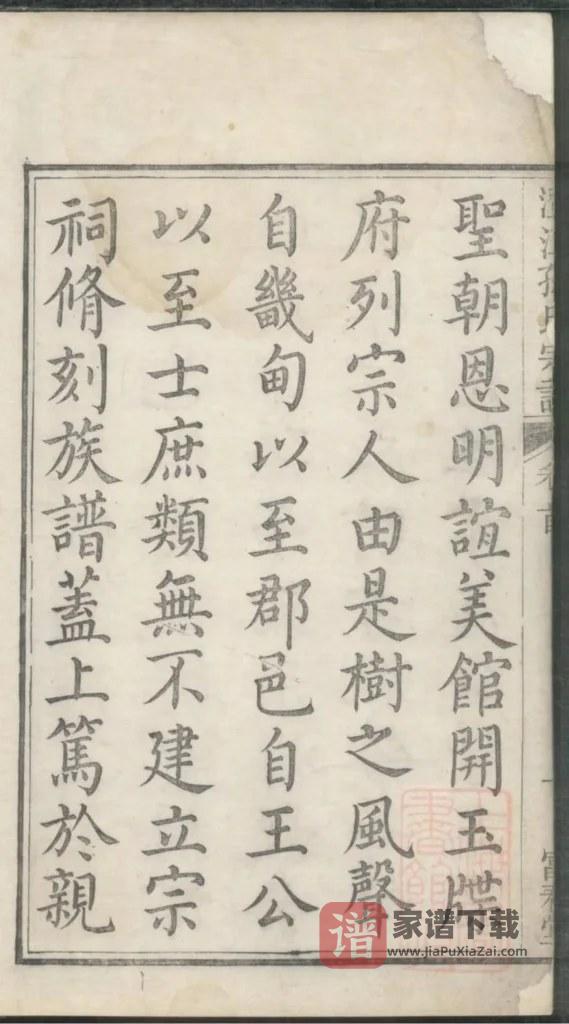 聖朝恩明誼美館開玉牒
府列宗人由是樹之風聲
自畿甸以至郡邑自王公
以至士庶類無不建立宗
祠脩刻族譜蓋上篤於親
孫氏宗譜
卷首
一
富春堂
谱
家谱下载
www.jiaPuXiaZai.com